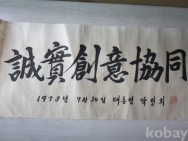 誠實創意協同
1973년 7월 30일 대통령 박정희
kobay